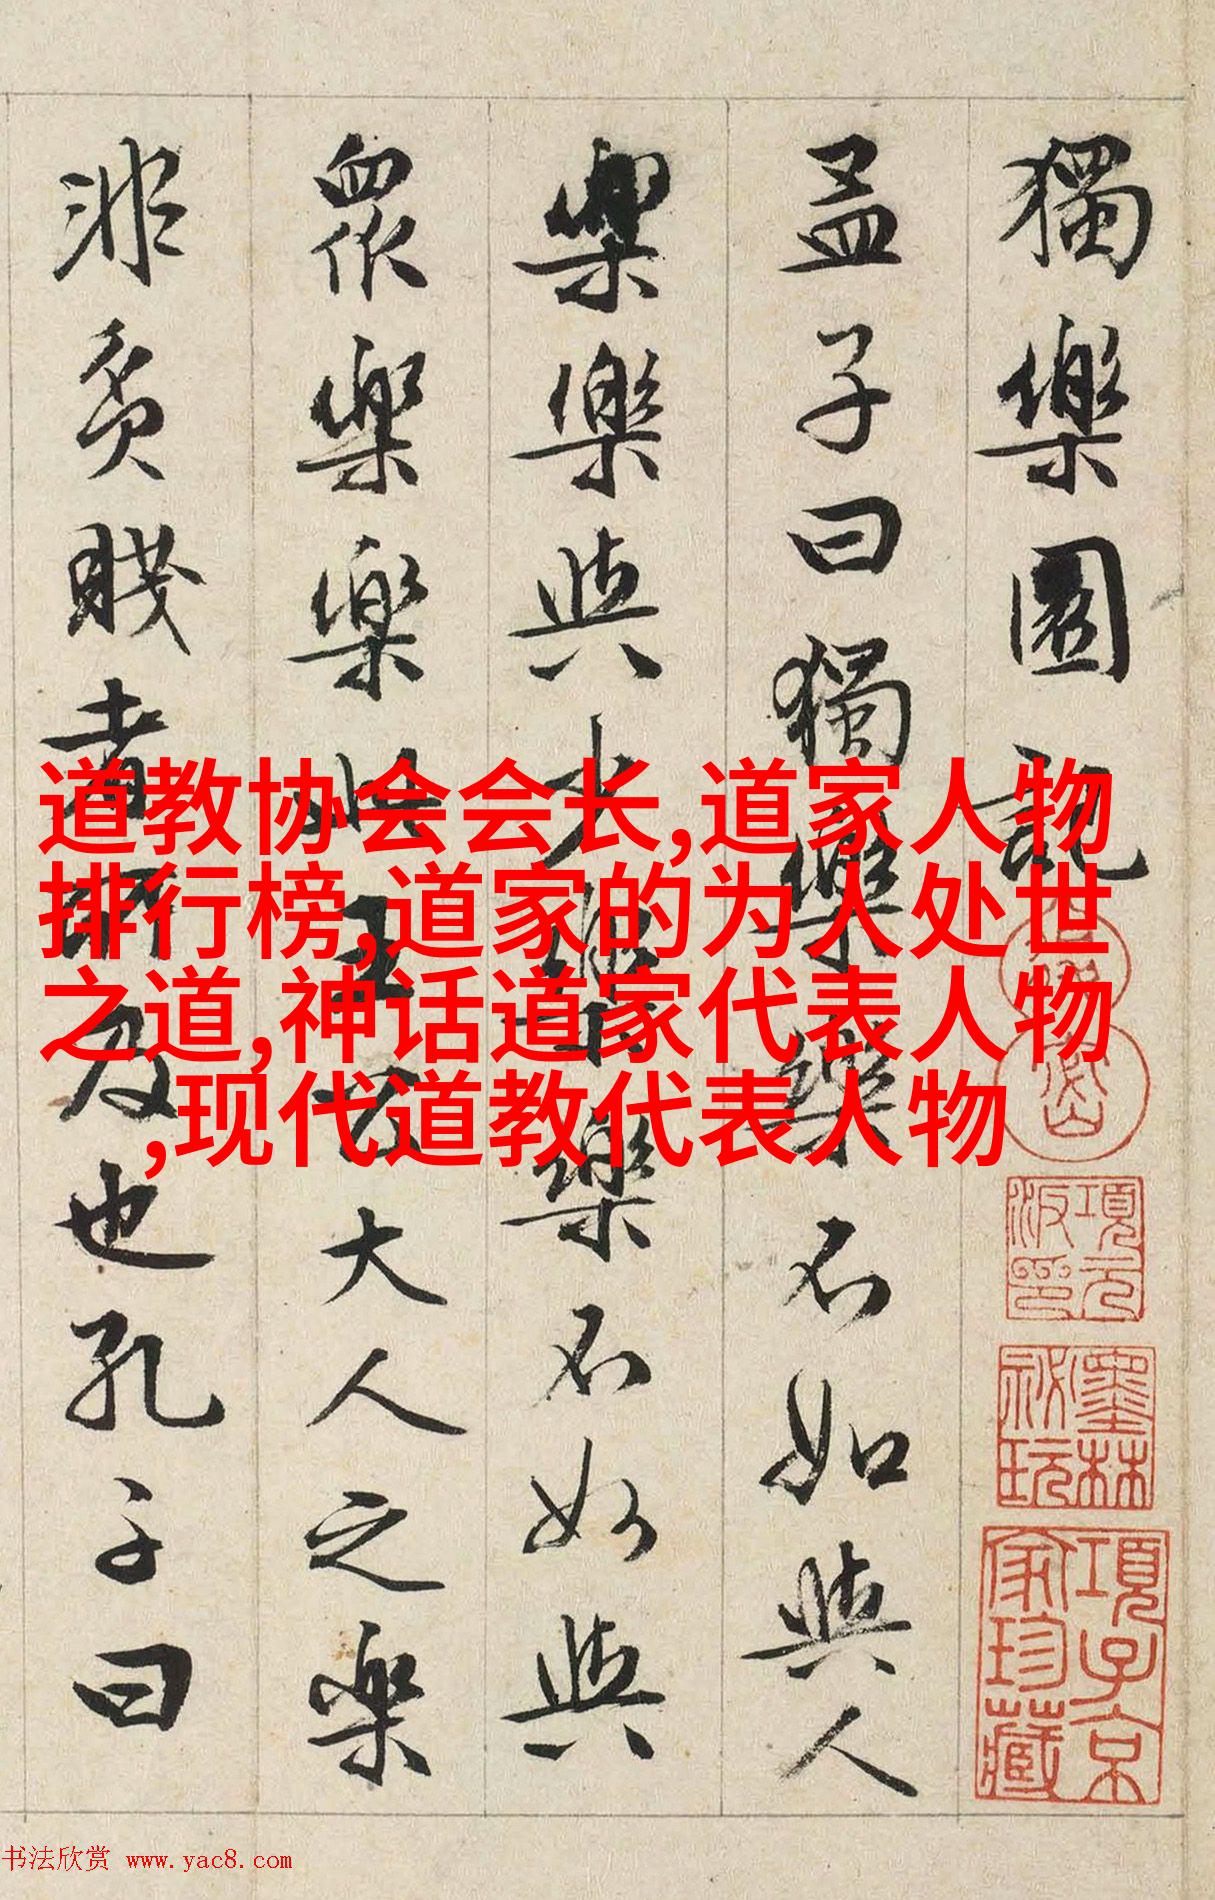 獨樂園記
孟子曰獨樂樂不如與人
樂樂與少樂樂不如與
眾樂樂此王公大人之樂
非貧賤者所及也孔子曰
道教协会会长,道家人物
排行榜,道家的为人处世
之道,神话道家代表人物
,现代道教代表人物
項元汴印
墨林秘玩
項子京家珍藏
书法欣赏 www.yac8.com